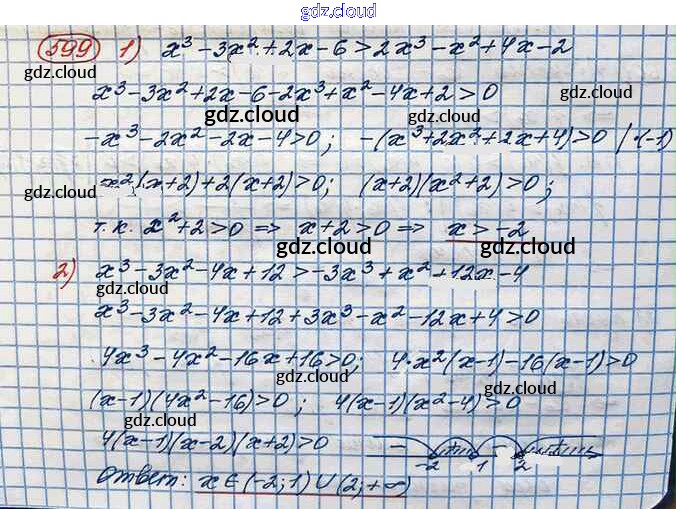 gdz.cloud
599 1) x³-3x²+2x-6>2x³-x²+4x-2
gdz.cloud gdz.cloud
x³-3x²+2x-6-2x³+x²-4x+2>0
gdz.cloud gdz.cloud
-x³-2x²-2x-4>0; -(x³+2x²+2x+4)>0 /·(-1)
gdz.cloud gdz.cloud
x²(x+2)+2(x+2)>0; (x+2)(x²+2)>0;
gdz.cloud
т.к. x²+2>0 => x+2>0 => x>-2
gdz.cloud gdz.cloud
2) x³-3x²-4x+12>-3x³+x²+12x-4
gdz.cloud gdz.cloud
x³-3x²-4x+12+3x³-x²-12x+4>0
gdz.cloud
4x³-4x²-16x+16>0; 4·x²(x-1)-16(x-1)>0
gdz.cloud gdz.cloud
(x-1)(4x²-16)>0; 4(x-1)(x²-4)>0
gdz.cloud
4(x-1)(x-2)(x+2)>0 - + - +
-2 1 2
Ответ: x∈(-2;1)∪(2;+∞)
gdz.cloud